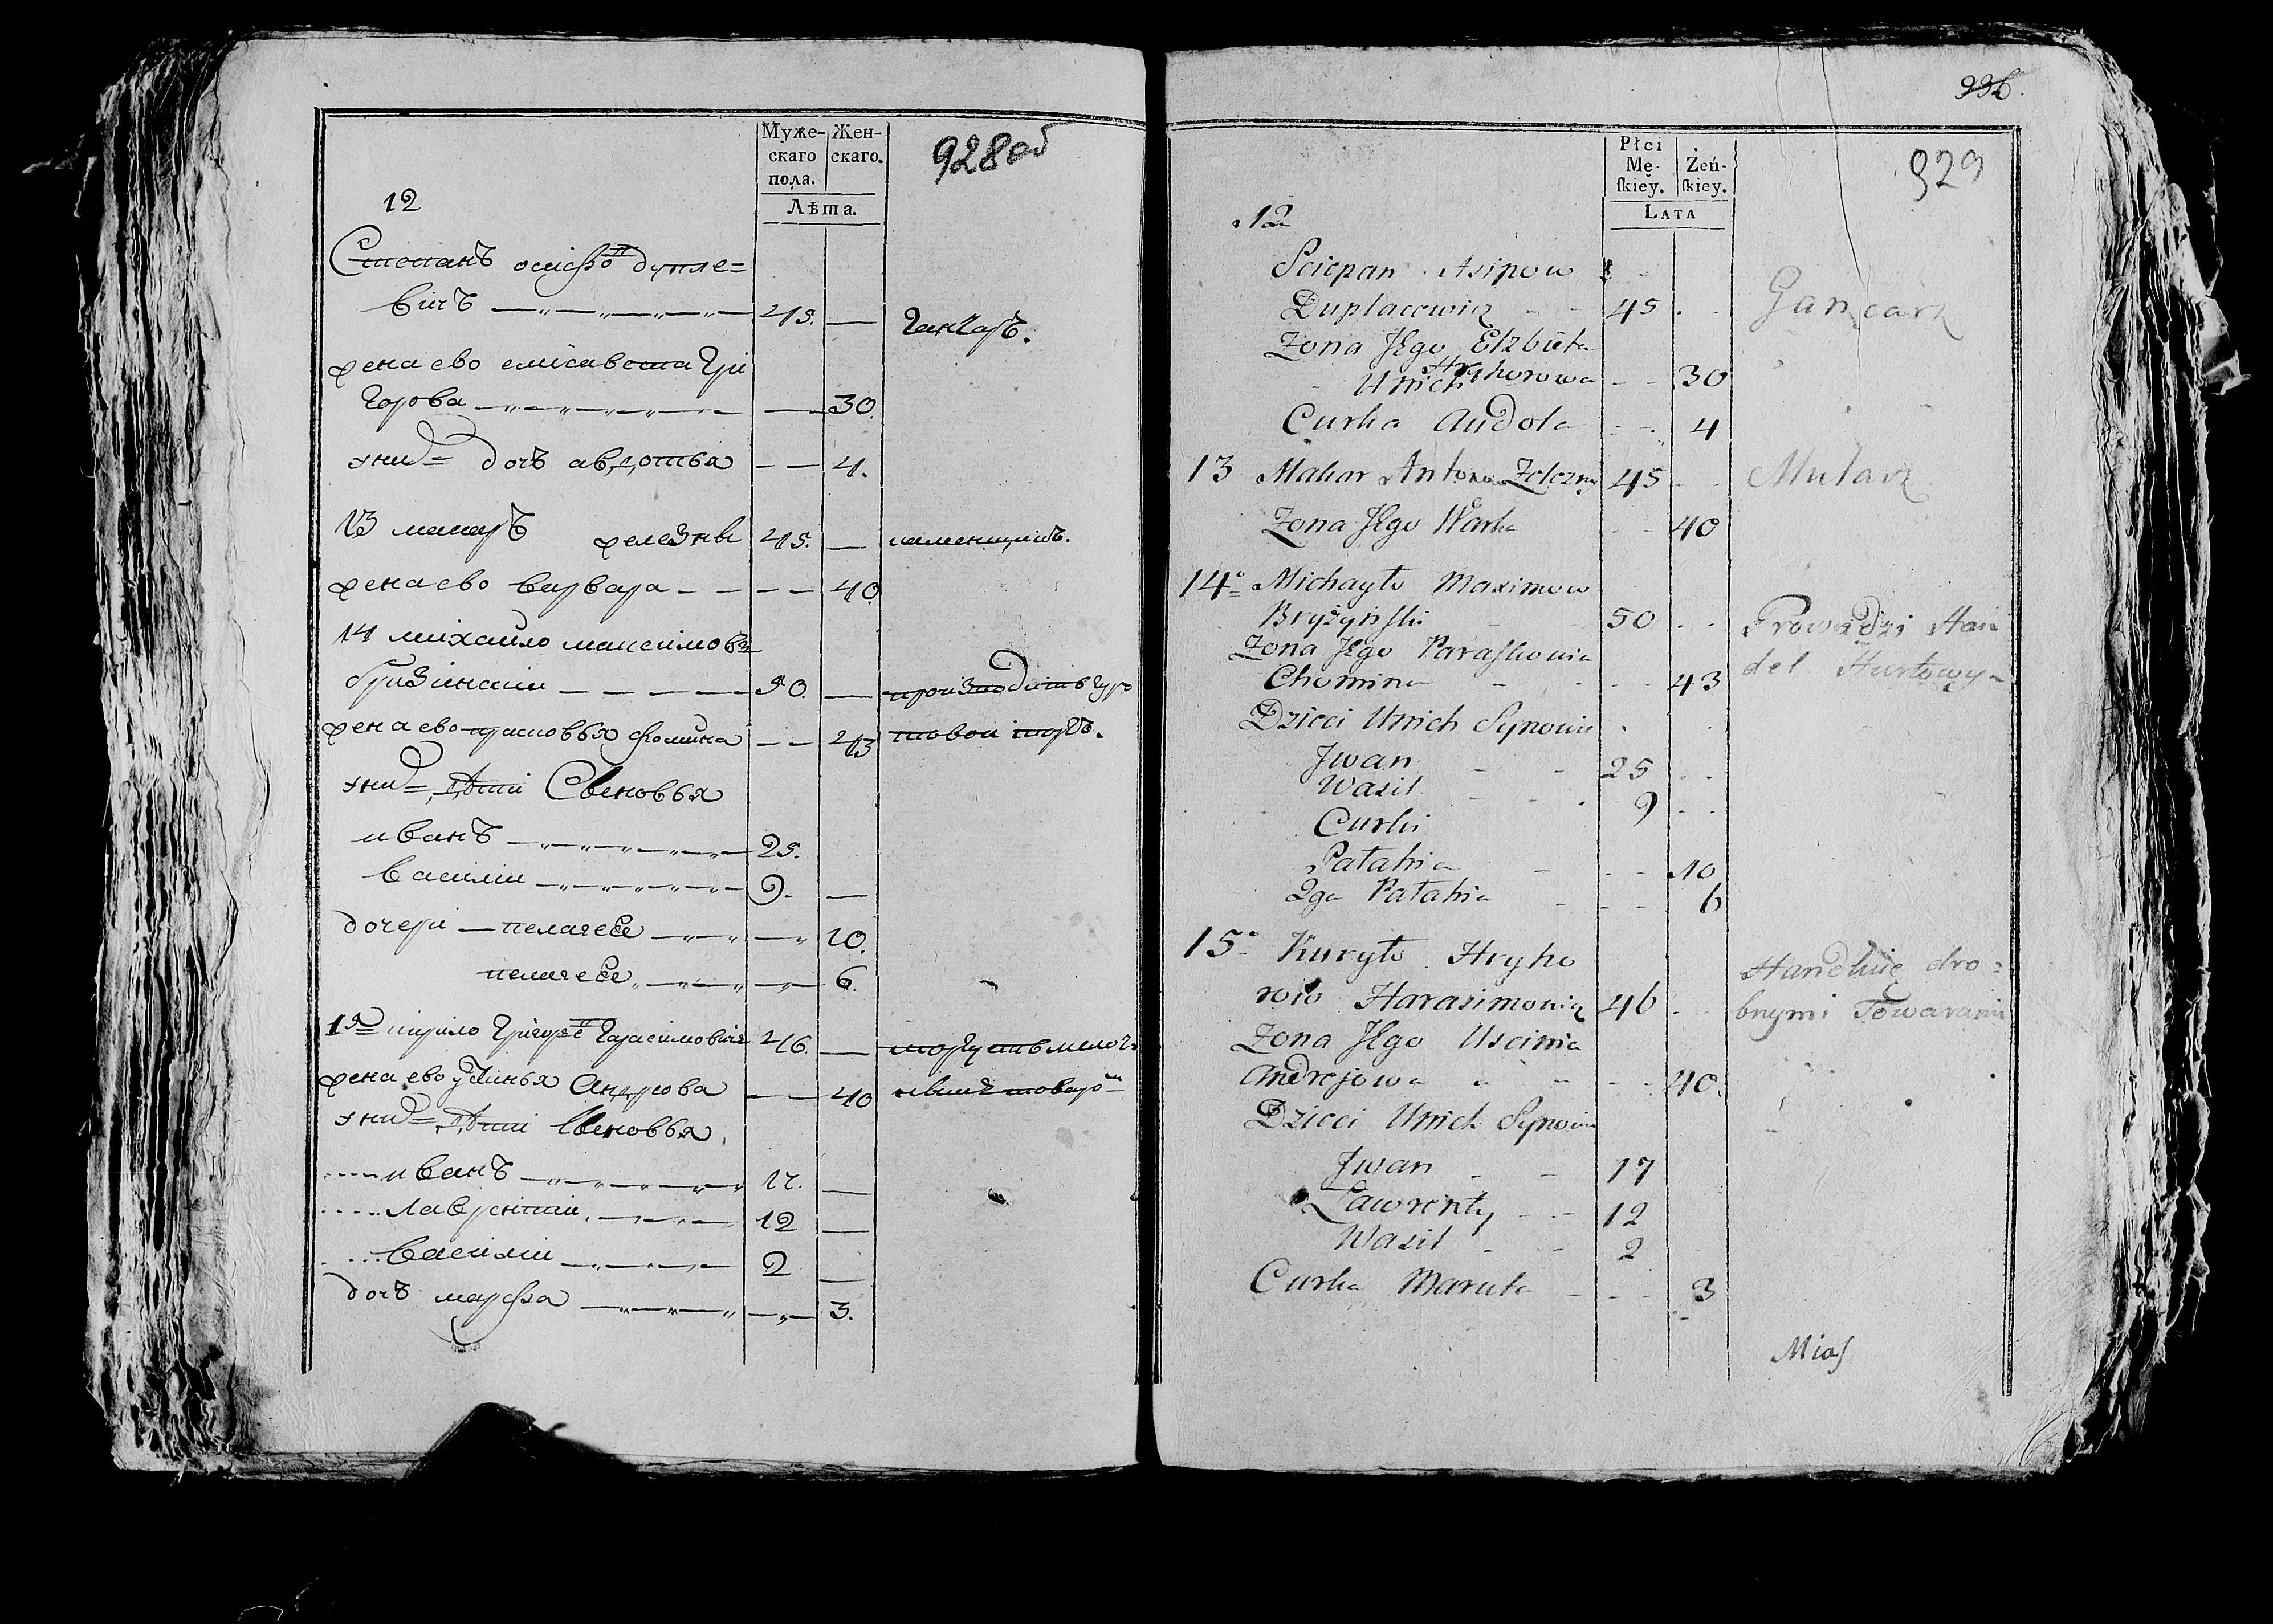 Муже-
скаго
пола.
Жен-
скаго.
Лѣта.
928 об
12
Степанъ осифо дупле=
вичъ 45. ганчаръ.
жена ево елисавета Гри
горова 30.
у них дочь авдотья 4.
13 макаръ железны 45. каменщикъ.
жена ево варвара 40.
14 михаило максимовъ
бризинскии 50. производитъ гур
жена ево прасковья фомина 43 товои торгъ.
у них дѣти Сыновья
иванъ 25.
василии 9.
дочери пелагея 10.
пелагея 6.
15 кирило Григоре Гарасимовичъ 46. торгуетъ мелоч
жена ево устинья Андреова 40 нымъ товаро
у них дѣти Сыновья
иванъ 17.
лаврентии 12
василии 2
дочь марфа 3.
996.
Płci
Mę-
ſkiey.
Żeń-
ſkiey.
LATA
929
12
Sciepan Asipow
Duplacewicz 45 Gancarz
Zona Jego Elzbieta
Hryhorowa 30
Unich
Curka Audola 4
13 Makar Antonow Zelezny 45 Mularz
Zona Jego Warka 40
14 Michayło Maximow
Bryżynski 50 Prowadzi Han
Zona Jego Paraskowia
Chomina 43 del Hurtowy
Dzieci Unich Synowie
Jwan 25
Wasil 9
Curki
Patahia 10
2ga Patahia 6
15 Kuryło Hryho
row Harasimowicz 46 Handluie dro=
bnymi Towarami
Zona Jego Uscinia
Andrejowa 40.
Dzieci Unich Synowie
Jwan 17
Lawrenty 12
Wasil 2
Curka Maruta 3
Mias